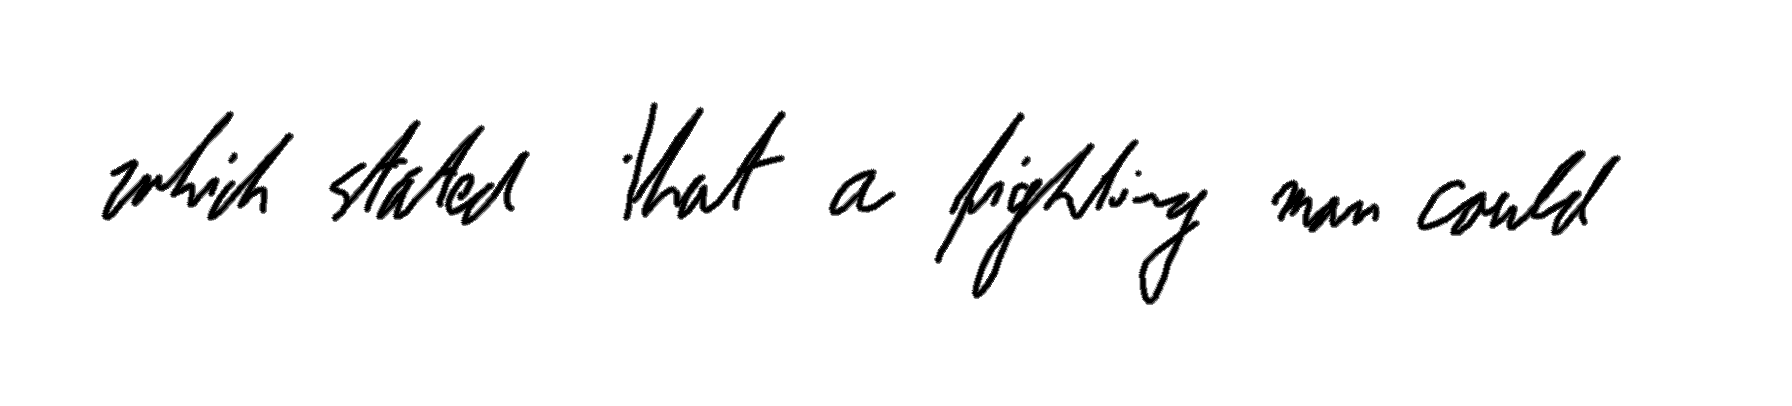 which stated that a fighting man could